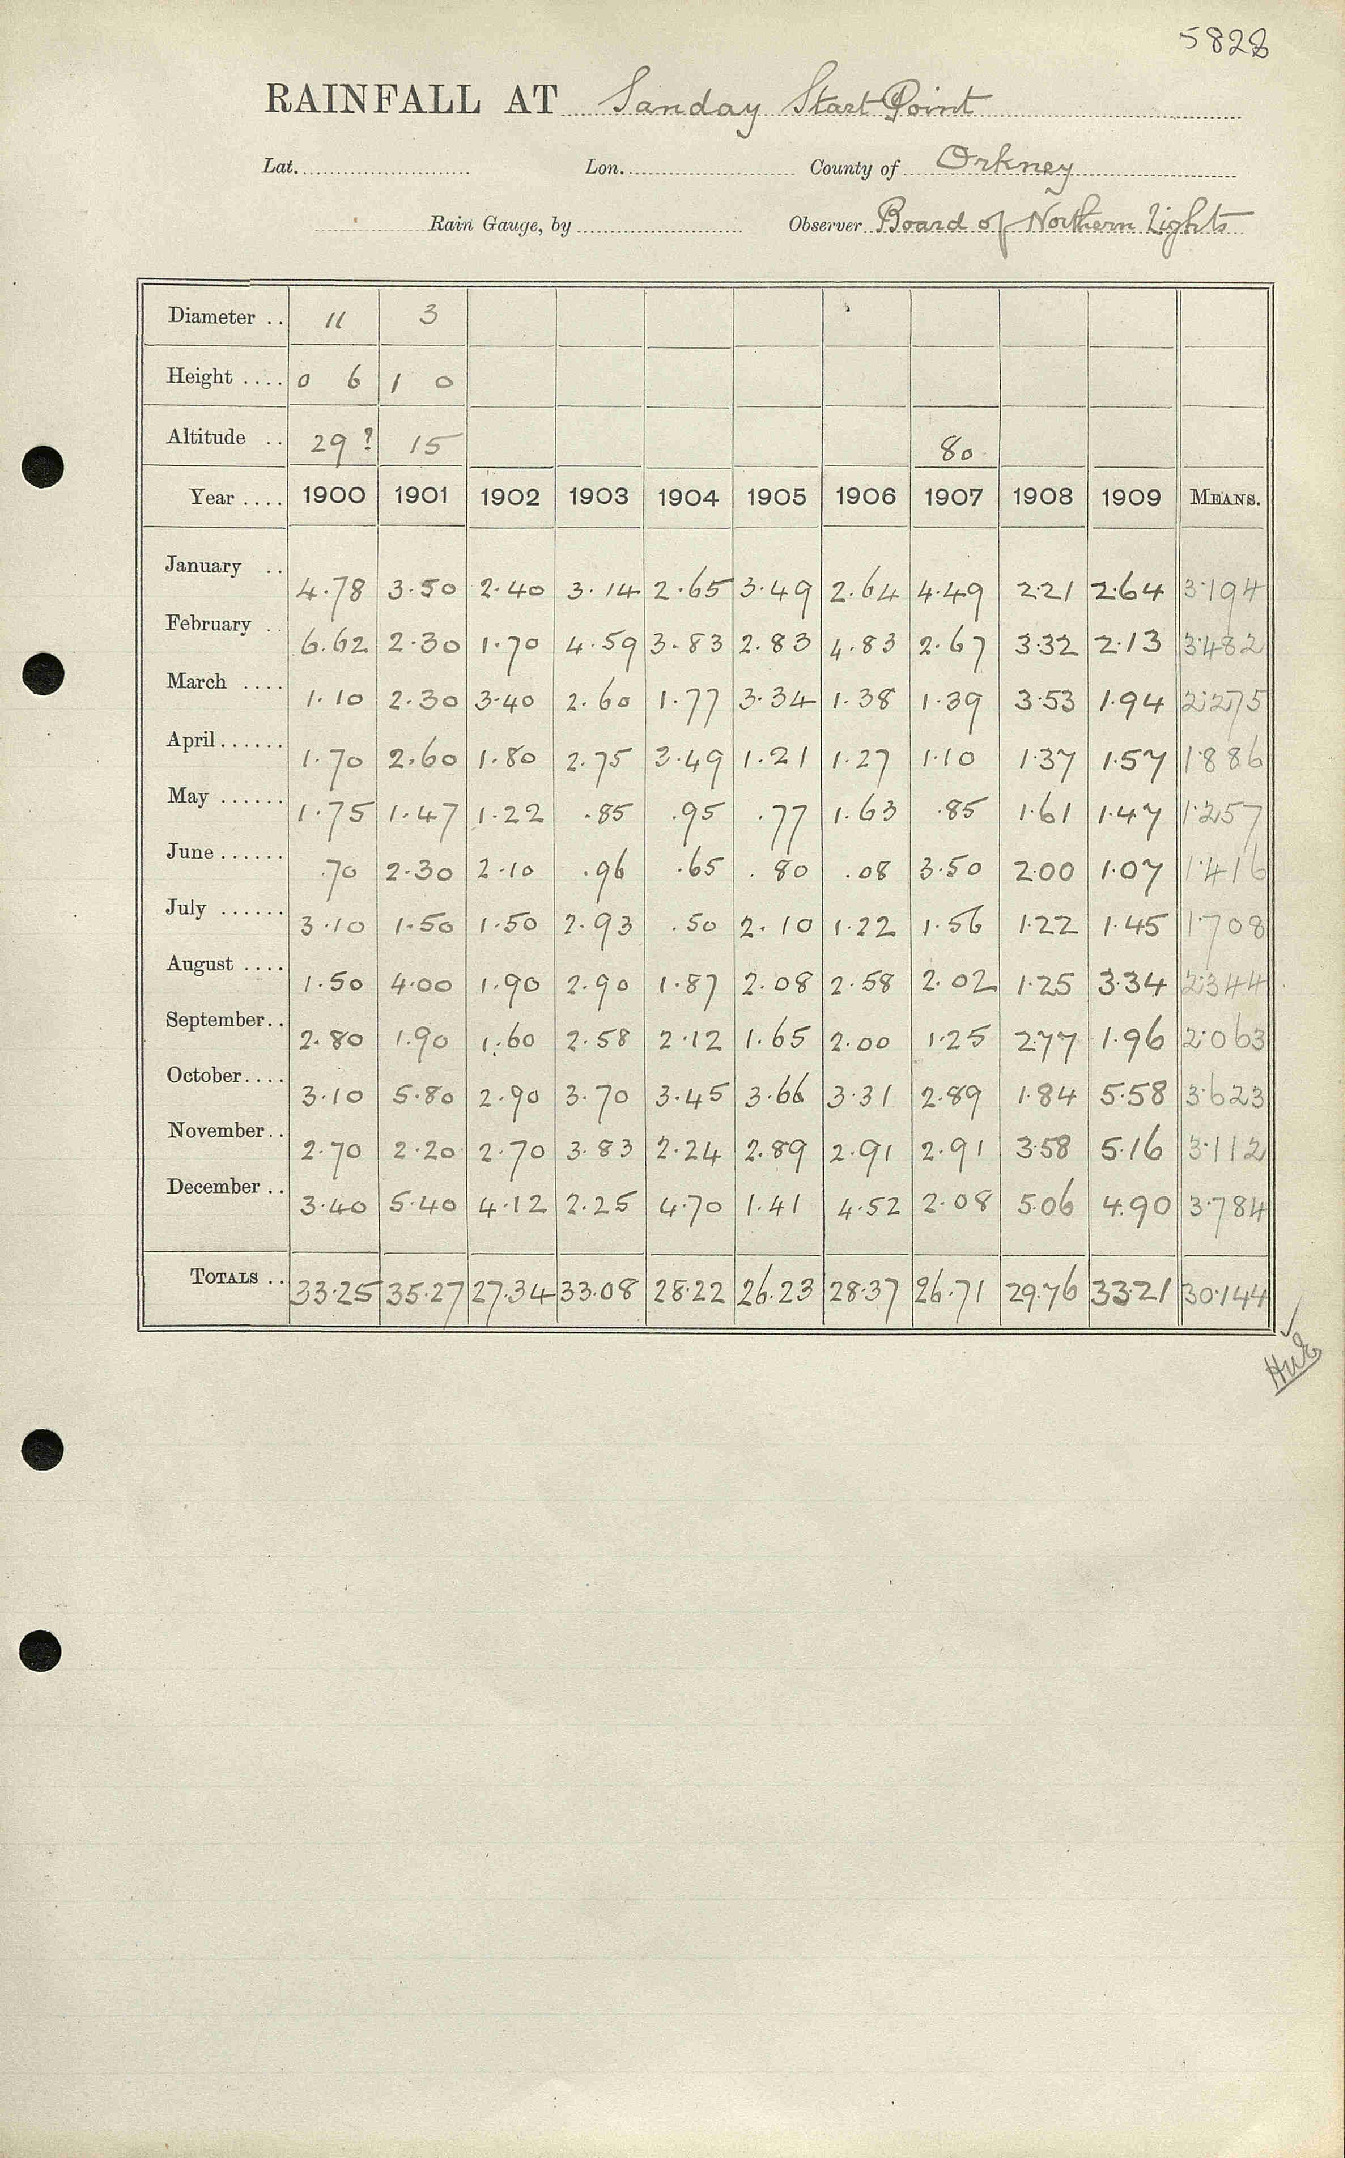 5828
RAINFALL AT Sanday Start Point
Lat. Lon. County of Orkney
Rain Gauge, by Observer Board of Northern Lights
Diameter .. 11 3
Height .... 0 6 1 0
Altitude .. 29? 15 80
Year .... 1900 1901 1902 1903 1904 1905 1906 1907 1908 1909 MEANS.
January .. 4.78 3.50 2.40 3.14 2.65 3.49 2.64 4.49 2.21 2.64 3.194
February .. 6.62 2.30 1.70 4.59 3.83 2.83 4.83 2.67 3.32 2.13 3.482
March .... 1.10 2.30 3.40 2.60 1.77 3.34 1.38 1.39 3.53 1.94 2.275
April...... 1.70 2.60 1.80 2.75 3.49 1.21 1.27 1.10 1.37 1.57 1.886
May ...... 1.75 1.47 1.22 .85 .95 .77 1.63 .85 1.61 1.47 1.257
June...... .70 2.30 2.10 .96 .65 .80 .08 3.50 2.00 1.07 1.416
July ...... 3.10 1.50 1.50 2.93 .50 2.10 1.22 1.56 1.22 1.45 1.708
August .... 1.50 4.00 1.90 2.90 1.87 2.08 2.58 2.02 1.25 3.34 2.344
September.. 2.80 1.90 1.60 2.58 2.12 1.65 2.00 1.25 2.77 1.96 2.063
October.... 3.10 5.80 2.90 3.70 3.45 3.66 3.31 2.89 1.84 5.58 3.623
November.. 2.70 2.20 2.70 3.83 2.24 2.89 2.91 2.91 3.58 5.16 3.112
December .. 3.40 5.40 4.12 2.25 4.70 1.41 4.52 2.08 5.06 4.90 3.784
TOTALS .. 33.25 35.27 27.34 33.08 28.22 26.23 28.37 26.71 29.76 33.21 30.144